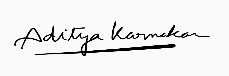 Aditya Karmakar